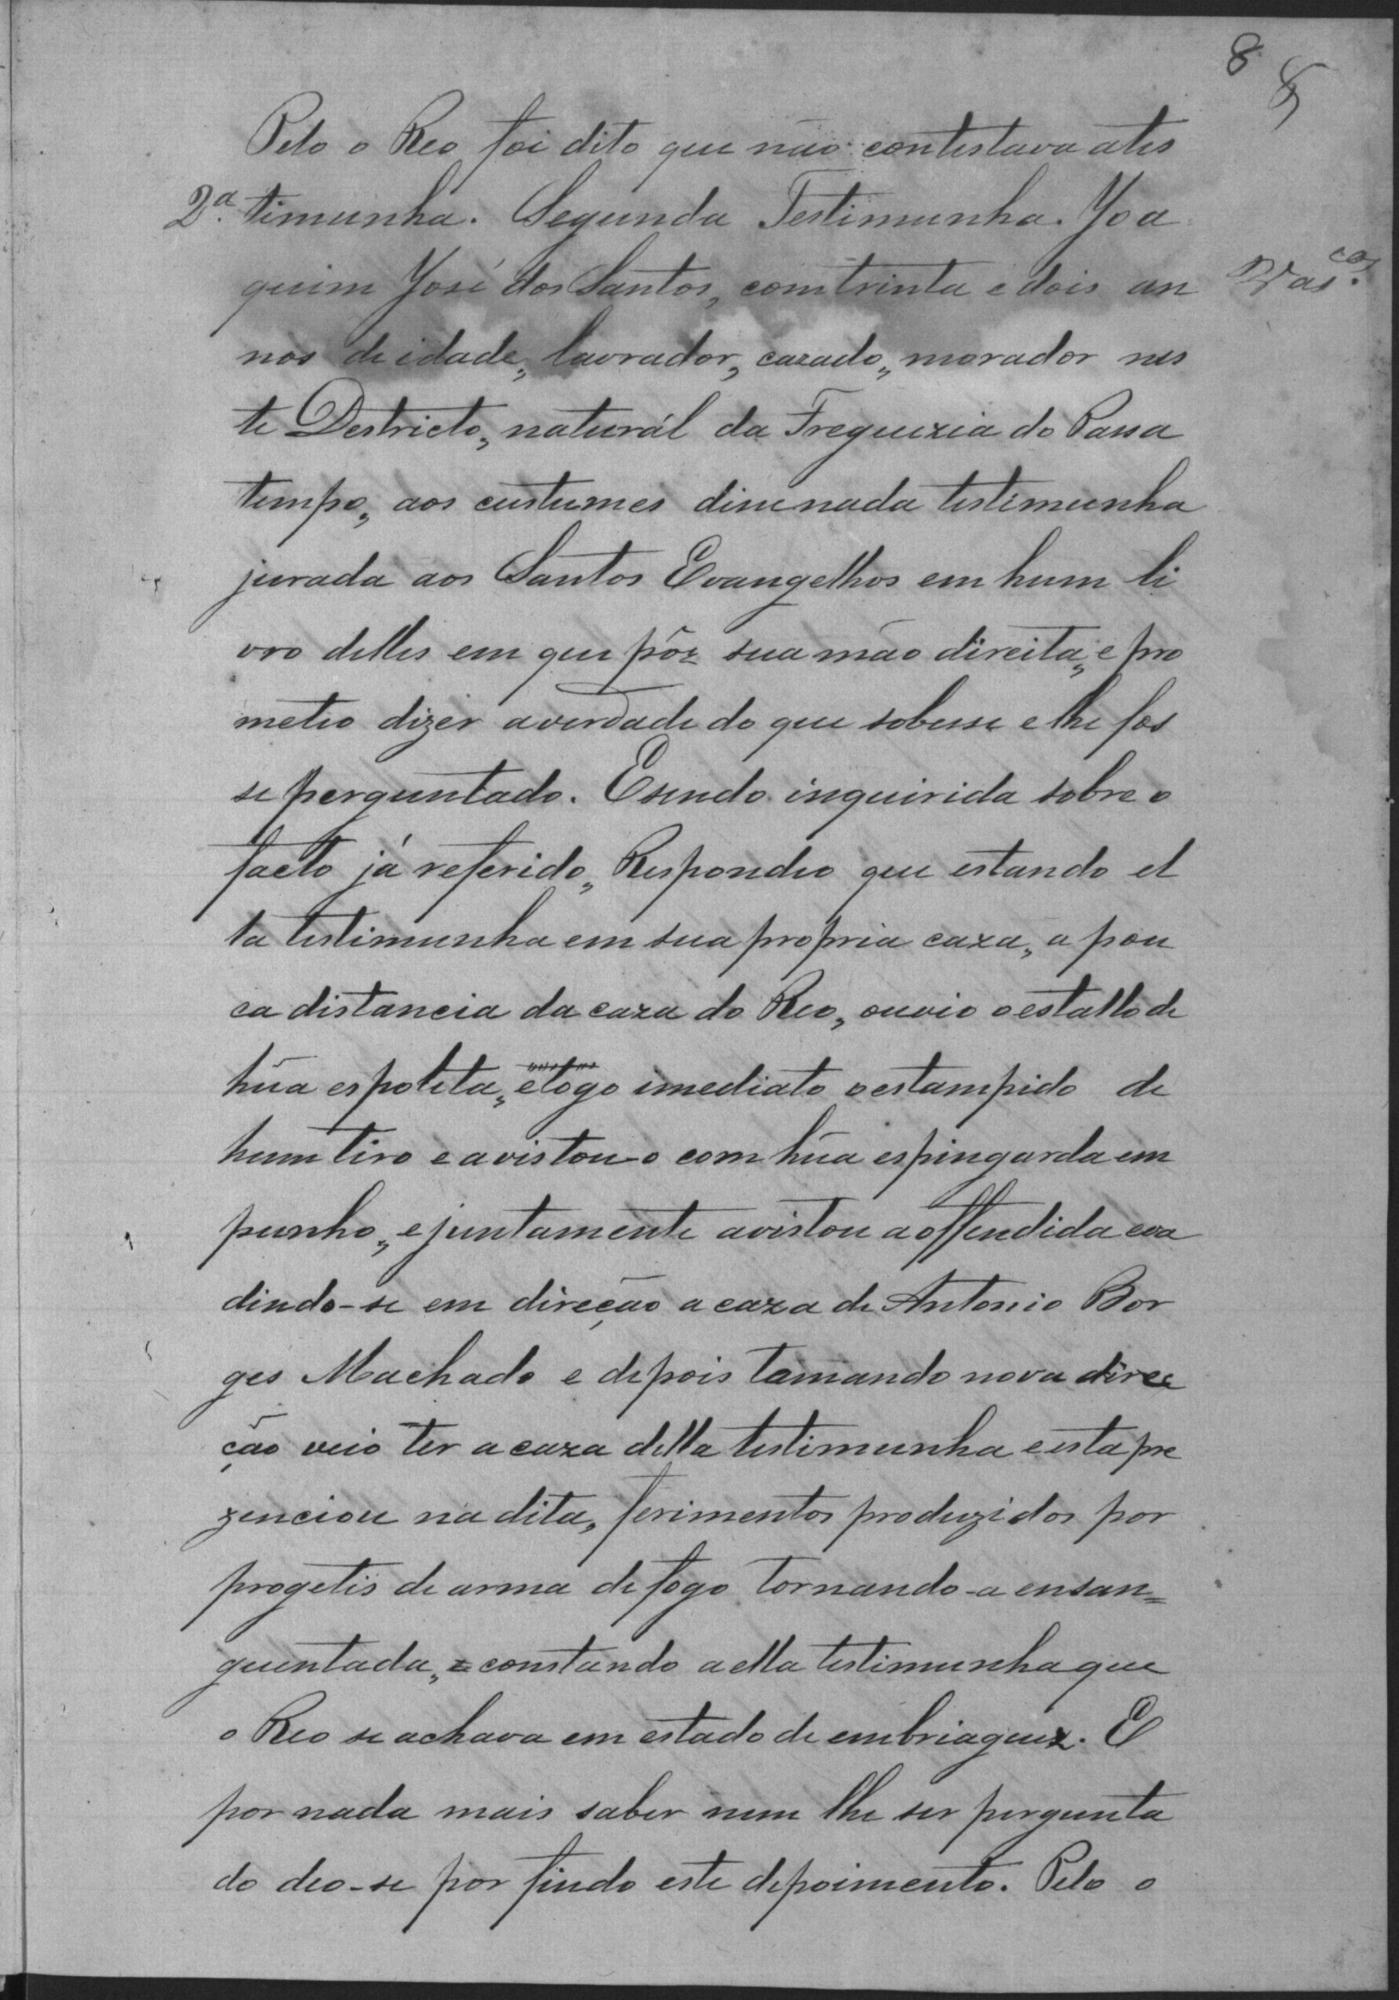 8 8
Pelo o Reo foi dito que não contestava a tes
2ª timunha. Segunda Testimunha. Joa
quim José dos Santos, com trinta e dois an
nos de idade, lavrador, cazado, morador nes
te Destricto, naturál da Freguezia do Passa
tempo, aos custumes disse nada testimunha
jurada aos Santos Evangelhos em hum li
vro delles em que pôz sua mão direita, e pro
meteo dizer a verdade do que sobesse e lhe fos
se perguntado. E sendo inquirida sobre o
facto já referido, Respondeo que estando el
la testimunha em sua propria caza, a pou
ca distancia da caza do Reo, ouvio o estallo de
hũa espoleta, e logo imediato o estampido de
hum tiro e avistou-o com hũa espingarda em
punho, e juntamente avistou a offendida eva
dindo-se em direção a caza de Antonio Bor
ges Machado e depois tomando nova direc
ção veio ter a caza della testimunha e esta pre
zenciou na dita, ferimentos produzidos por
progetis de arma de fogo tornando-a ensan=
guentada, e constando a ella testimunha que
o Reo se achava em estado de embriaguez. E
por nada mais saber nem lhe ser pergunta
do deo-se por findo este depoimento. Pelo o